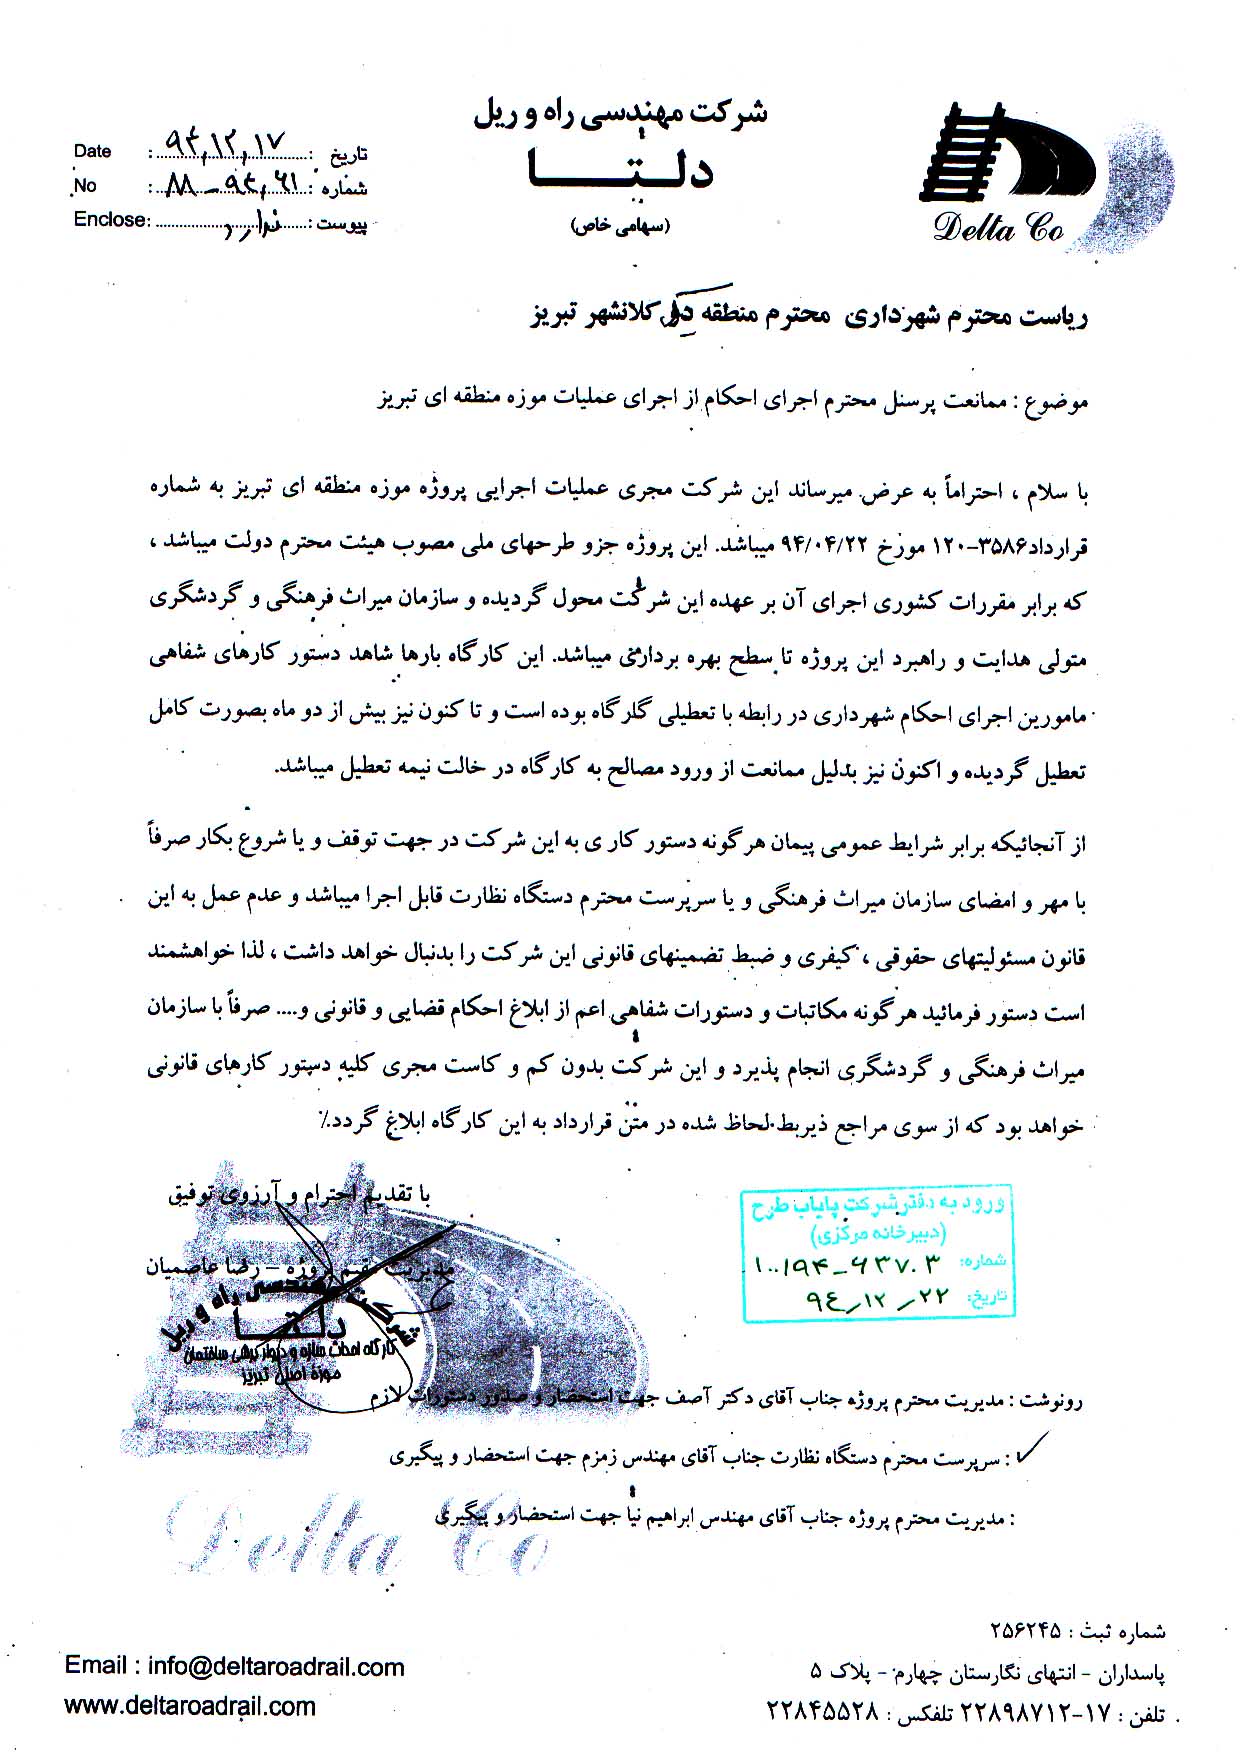 شرکت مهندسی راه و ریل
دلتا
(سهامی خاص)
Delta Co
Date : ۹۴,۱۲,۱۷ : تاریخ
No : ۸۸-۹۴,۶۱ : شماره
Enclose: ندارد : پیوست
ریاست محترم شهرداری محترم منطقه کلانشهر تبریز
موضوع : ممانعت پرسنل محترم اجرای احکام از اجرای عملیات موزه منطقه ای تبریز
با سلام ، احتراماً به عرض میرساند این شرکت مجری عملیات اجرایی پروژه موزه منطقه ای تبریز به شماره
قرارداد۳۵۸۶-۱۲۰ مورخ ۹۴/۰۴/۲۲ میباشد. این پروژه جزو طرحهای ملی مصوب هیئت محترم دولت میباشد ،
که برابر مقررات کشوری اجرای آن بر عهده این شرکت محول گردیده و سازمان میراث فرهنگی و گردشگری
متولی هدایت و راهبرد این پروژه تا سطح بهره برداری میباشد. این کارگاه بارها شاهد دستور کارهای شفاهی
مامورین اجرای احکام شهرداری در رابطه با تعطیلی کارگاه بوده است و تا کنون نیز بیش از دو ماه بصورت کامل
تعطیل گردیده و اکنون نیز بدلیل ممانعت از ورود مصالح به کارگاه در حالت نیمه تعطیل میباشد.
از آنجائیکه برابر شرایط عمومی پیمان هرگونه دستور کاری به این شرکت در جهت توقف و یا شروع بکار صرفاً
با مهر و امضای سازمان میراث فرهنگی و یا سرپرست محترم دستگاه نظارت قابل اجرا میباشد و عدم عمل به این
قانون مسئولیتهای حقوقی ، کیفری و ضبط تضمینهای قانونی این شرکت را بدنبال خواهد داشت ، لذا خواهشمند
است دستور فرمائید هرگونه مکاتبات و دستورات شفاهی اعم از ابلاغ احکام قضایی و قانونی و.... صرفاً با سازمان
میراث فرهنگی و گردشگری انجام پذیرد و این شرکت بدون کم و کاست مجری کلیه دستور کارهای قانونی
خواهد بود که از سوی مراجع ذیربط لحاظ شده در متن قرارداد به این کارگاه ابلاغ گردد./
با تقدیم احترام و آرزوی توفیق
مدیریت مقیم پروژه – رضا عاصمیان
شرکت مهندسی راه و ریل
دلتا
موزه اصلی تبریز
ورود به دفتر شرکت پایاب طرح
(دبیرخانه مرکزی)
شماره: ۱۰۰۱۹۴-۶۳۷۰۳
تاریخ: ۹۴/۱۲/۲۲
رونوشت : مدیریت محترم پروژه جناب آقای دکتر آصف جهت استحضار و صدور دستورات لازم
: سرپرست محترم دستگاه نظارت جناب آقای مهندس زمزم جهت استحضار و پیگیری
: مدیریت محترم پروژه جناب آقای مهندس ابراهیم نیا جهت استحضار و پیگیری
Delta Co
شماره ثبت : ۲۵۶۲۴۵
پاسداران – انتهای نگارستان چهارم – پلاک ۵
تلفن : ۱۷-۲۲۸۹۸۷۱۲ تلفکس : ۲۲۸۴۵۵۲۸
Email : info@deltaroadrail.com
www.deltaroadrail.com